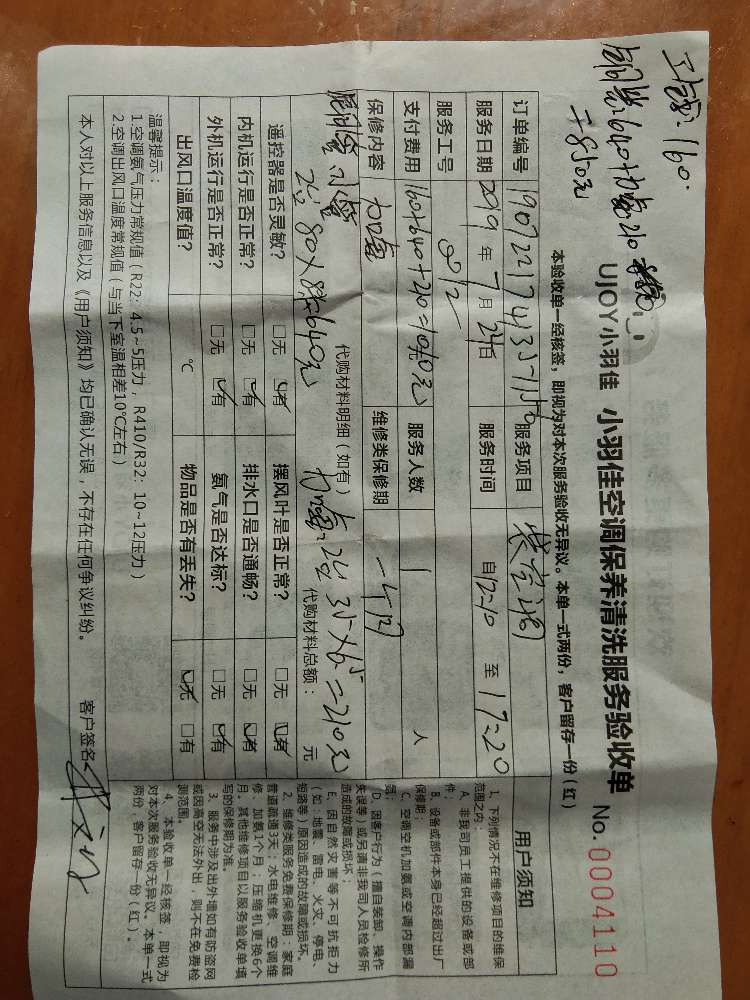 工费: 160.
铜管: 640+加氟210
=850元
UJOY小羽佳 小羽佳空调保养清洗服务验收单 No.0004110
本验收单一经核签，即视为对本次服务验收无异议。本单一式两份，客户留存一份（红）
订单编号 服务项目
服务日期 2019 年 7 月 24 日 服务时间 自 17:10 至 17:20
服务工号 812
支付费用 160+640+210=1010元 服务人数 1 人
保修内容 加氟 维修类保修期 一个月
代购材料明细（如有） 代购材料总额： 元
铜管 80×8米=640元 加氟: 35×6=210元
遥控器是否灵敏？ □无 □有 摆风叶是否正常？ □无 □有
内机运行是否正常？ □无 □有 排水口是否通畅？ □无 □有
外机运行是否正常？ □无 □有 氨气是否达标？ □无 □有
出风口温度值？ ℃ 物品是否有丢失？ □无 □有
温馨提示：
1.空调氨气压力常规值（R22：4.5~5压力，R410/R32：10~12压力）
2.空调出风口温度常规值（与当下室温相差10℃左右）
本人对以上服务信息以及《用户须知》均已确认无误，不存在任何争议纠纷。 客户签名：
用户须知
1、下列情况不在维修项目的维保
范围之内：
A、非我司员工提供的设备或部
件；
B、设备或部件本身已经超过出厂
保修期；
C、空调空机加氨或空调内部漏
氨；
D、因客户行为（擅自装卸、操作
失误等）或另请非我司人员检修所
造成的故障或损坏；
E、因自然灾害等不可抗拒力
（如：地震、雷电、火灾、停电、
短路等）原因造成的故障或损坏。
2、维修类服务免费保修期：家庭
管道疏通3天；水电维修、空调维
修、加氨1个月；压缩机更换6个
月。其他维修项目以服务验收单填
写的保修期为准。
3、服务中涉及出外墙如有防盗网
或因高空无法外出，则不在免费检
测范围。
4、本验收单一经核签，即视为
对本次服务验收无异议。本单一式
两份，客户留存一份（红）。